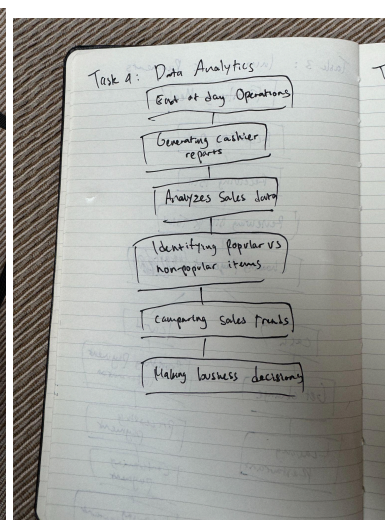 Task 4: Data Analytics
End of day Operations
Generating cashier
reports
Analyzes Sales data
Identifying Popular vs
non-popular items
Comparing Sales trends
Making business decisions
T